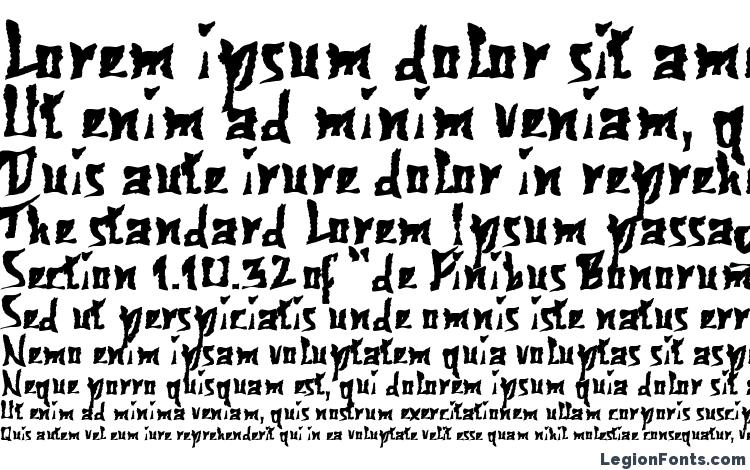 Lorem ipsum dolor sit am
Ut enim ad minim veniam, q
Duis aute irure dolor in reprehe
The standard Lorem Ipsum passag
Section 1.10.32 of "de Finibus Bonorum
Sed ut perspiciatis unde omnis iste natus err
Nemo enim ipsam voluptatem quia voluptas sit asp
Neque porro quisquam est, qui dolorem ipsum quia dolor sit
Ut enim ad minima veniam, quis nostrum exercitationem ullam corporis suscip
Quis autem vel eum iure reprehenderit qui in ea voluptate velit esse quam nihil molestiae consequatur, v
LegionFonts.com